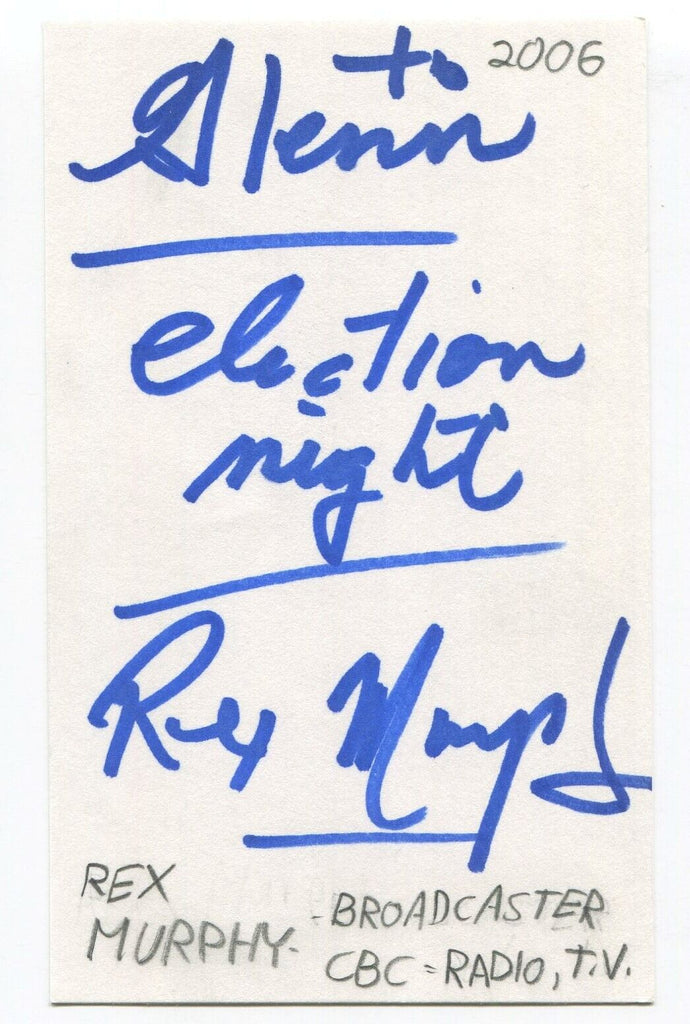 to 2006
Glenn
election
night
Rex Murphy
REX
MURPHY-
- BROADCASTER
CBC = RADIO, T.V.